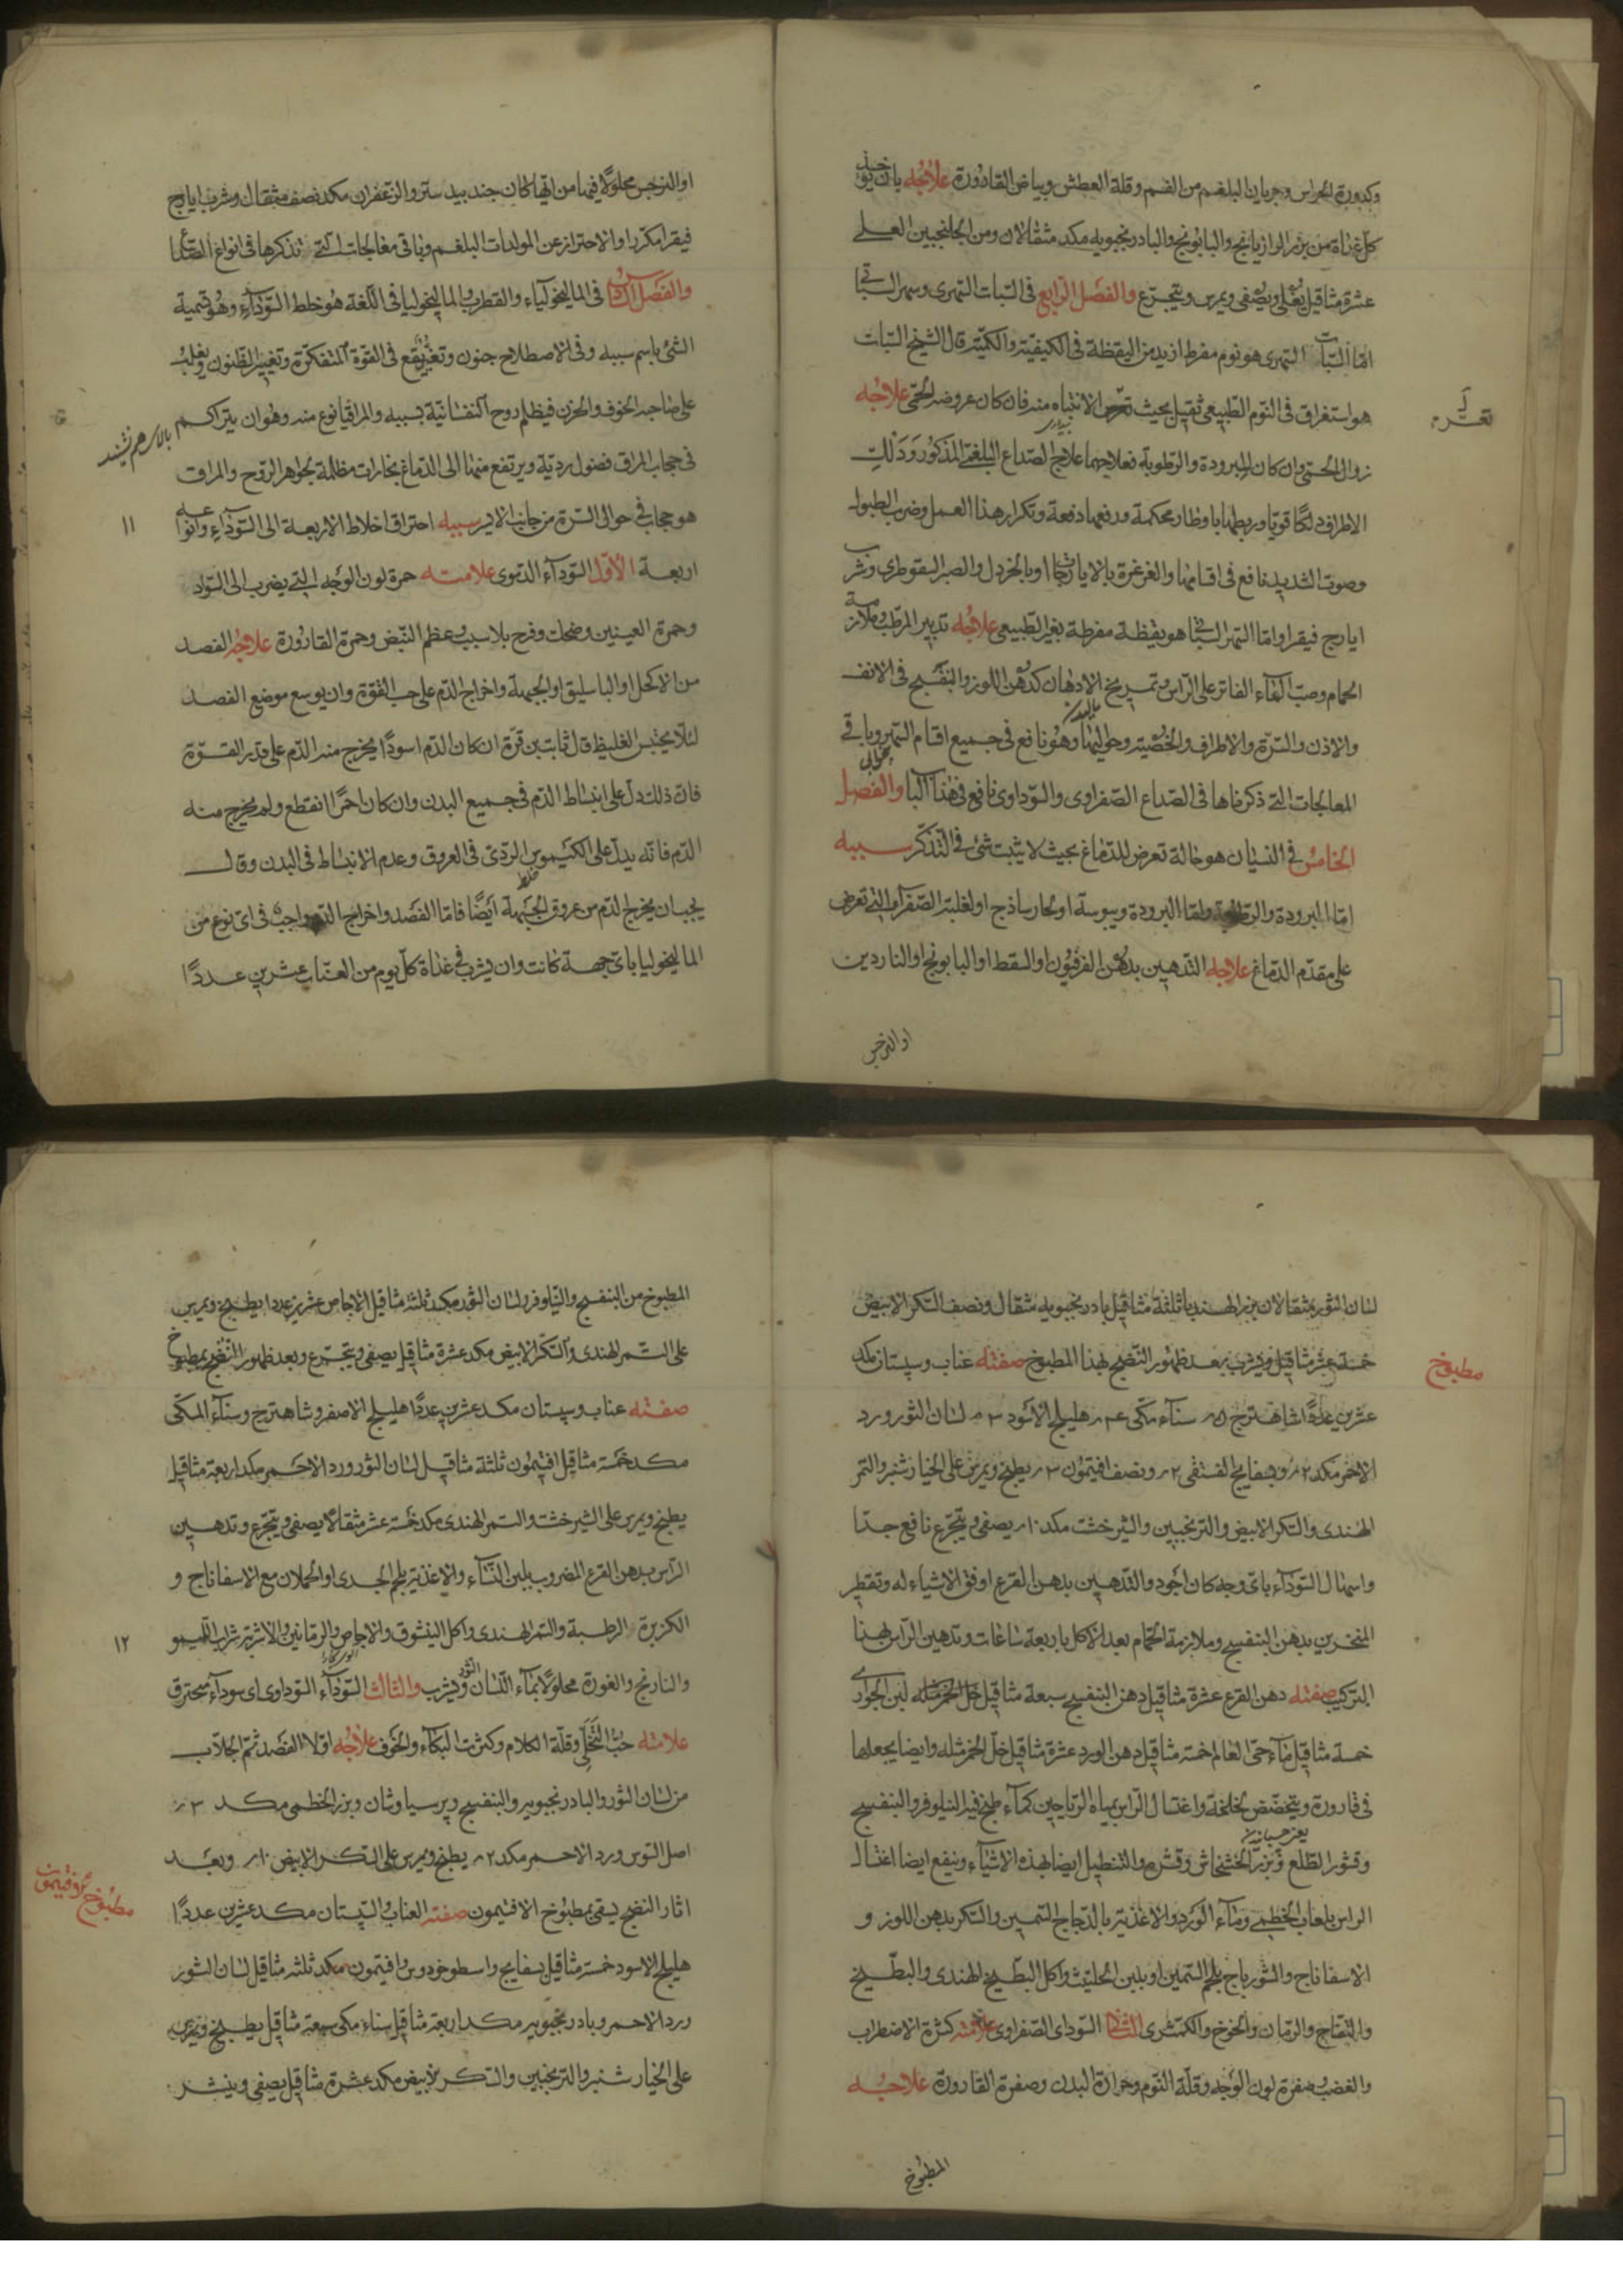 وكدورة الحواس وجريان البلغم من الفم وقلة العطش وبياض القارورة علاجه بان يؤخذ
كل غداة من بزر الرازيانج والبابونج والبادرنجبويه مكد مثقالان ومن الجلنجبين العسلي
عشرة مثاقيل يغلى ويصفى ويمرس ويتجرع والفصل الرابع في السبات السهرى وسهر السباتى
اما السبات السهرى هو نوم مفرط ازيد من اليقظة في الكيفية والكمية قال الشيخ السبات
هو استغراق في النوم الطبيعى ثقيل بحيث تعسر الانتباه منه فان كان عروضه الحمى علاجه
تعسر
زوال الحمى وان كان البرودة والرطوبة فعلاجهما علاج الصداع البلغمى المذكور ودلك
الاطراف دلكا قويا وربطها باوطار محكمة ودفعها دفعة وتكرار هذا العمل وضرب الطبول
وصوت الشديد نافع في اقسامها والغرغرة بالايارجات او بالخردل والصبر السقوطرى وشرب
ايارج فيقرا واما السهر السباتى هو يقظة مفرطة بغير الطبيعى علاجه تدبير المرطب وملازمة
الحمام وصب الماء الفاتر على الراس وتمريخ الادهان كدهن اللوز والبنفسج في الانف
والاذن والسرة والاطراف والخصية وحواليها وهو نافع في جميع اقسام السهر وباقى
المعالجات التى ذكرناها في الصداع الصفراوى والسوداوى نافع في هذا الباب والفصل
الخامس في النسيان هو حالة تعرض للدماغ بحيث لا يثبت شئ في التذكر سببه
اما البرودة والرطوبة واما البرودة ويبوسة او بحار ساذج او لغلبة الصفراء التى تعرض
على مقدم الدماغ علاجه التدهين بدهن الفرفيون او القسط او البابونج او الناردين
او النرجس
او النرجس محلولا فيها من ايها كان جند بيدستر والزعفران مكد نصف مثقال وشرب ايارج
فيقرا مكررا والاحتراز عن المولدات البلغم وباقى معالجات التى نذكرها في انواع الصداع
والفصل السادس في الماليخولياء والقطرب والماليخوليا في اللغة هو خلط السوداء وهو تسمية
الشئ باسم سببه وفى الاصطلاح جنون وتغير يقع في القوة المتفكرة وتغيير الظنون ويغلب
على صاحبه الخوف والحزن فيظلم روح النفسانية بسببه والمراقيا نوع منه وهو ان يتراكم
في حجاب المراق فضول ردية ويرتفع منها الى الدماغ بخارات مظلمة بجواهر الروح والمراق
هو حجاب في حوالى السرة من جانب الايسر سببه احتراق اخلاط الاربعة الى السوداء وانواعه
١١
اربعة الاول السوداء الدموى علامته حمرة لون الوجه التى يضرب الى السواد
وحمرة العينين وضحك وفرح بلا سبب وعظم النبض وحمرة القارورة علاجه الفصد
من الاكحل او الباسليق او الجبهة واخراج الدم على حسب القوة وان يوسع موضع الفصد
لئلا يحتبس الغليظ قال ثابت بن قرة ان كان الدم اسودا يخرج منه الدم على قدر القوة
فان ذلك دل على انبساط الدم في جميع البدن وان كان احمرا انقطع ولم يخرج منه
الدم فانه يدل على الكيموس الردئ في العروق وعدم الانبساط في البدن وقال
يجب ان يخرج الدم من عروق الجبهة ايضا فاما الفصد واخراج الدم واجب في اى نوع من
الماليخوليا باى جهة كانت وان يشرب في غداة كل يوم من العناب عشرين عددا
لسان الثور مثقالان بزر الهندبا ثلثة مثاقيل بادرنجبويه مثقال ونصف السكر الابيض
خمسة عشر مثاقيل ويشرب بعد ظهور النضج بهذا المطبوخ صفته عناب وسپستان مكد
مطبوخ
عشرين عددا شاهترج سناء مكى هليلج الاسود لسان الثور ورد
الاحمر مكد وبسفايج الفستقى ونصف افتيمون يطبخ ويمرس على الخيارشنبر والتمر
الهندى والسكر الابيض والترنجبين والشيرخشت مكد ١٠ يصفى ويتجرع نافع جدا
واسهال السوداء باى وجه كان اجود والتدهين بدهن القرع اوفق الاشياء له وتقطير
المنخرين بدهن البنفسج وملازمة الحمام بعد الاكل باربعة ساعات وتدهين الراس بهذا
التركيب صفته دهن القرع عشرة مثاقيل دهن البنفسج سبعة مثاقيل خل الخمر مثله لبن الجوارى
خمسة مثاقيل ماء حى العالم خمسة مثاقيل دهن الورد عشرة مثاقيل خل الخمر مثله وايضا يجعلها
في قارورة ويتخضخض لخلخة واغتسال الراس بمياه الرياحين كماء طبخ فيه النيلوفر والبنفسج
وقشور الطلع وبزر الخشخاش وقشره والتنطيل ايضا بهذه الاشياء وينفع ايضا اغتسال
الراس بلعاب الخطمى وماء الورد والاغذية بالدجاج السمين والسكر بدهن اللوز و
الاسفاناج والشورباج بلحم السمين او بلبن الحليب واكل البطيخ الهندى والبطيخ
والتفاح والرمان والخوخ والكمثرى الثانى السوداى الصفراوى علامته كثرة الاضطراب
والغضب وصفرة لون الوجه وقلة النوم وحرارة البدن وصفرة القارورة علاجه
المطبوخ
المطبوخ من البنفسج والنيلوفر ولسان الثور مكد ثلثة مثاقيل الاجاص عشرين عددا يطبخ ويمرس
على التمر الهندى والسكر الابيض مكد عشرة مثاقيل يصفى ويتجرع وبعد ظهور النضج بمطبوخ
صفته عناب وسپستان مكد عشرين عددا هليلج الاصفر وشاهترج وسناء المكى
مكد خمسة مثاقيل افتيمون ثلثة مثاقيل لسان الثور ورد الاحمر مكد اربعة مثاقيل
يطبخ ويمرس على الشيرخشت والتمر الهندى مكد خمسة عشر مثقالا يصفى ويتجرع وتدهين
الراس بدهن القرع المضروب بلبن النساء والاغذية بلحم الجدى او الحملان مع الاسفاناج و
الكزبرة الرطبة والتمر الهندى واكل النيشوق والاجاص والرمانين والاشربة شراب الليمو
١٢
والنارنج والغورة محلولا بماء اللسان الثور ويشرب والثالث السوداء السوداوى اى سوداء محترق
علامته حب التخلى وقلة الكلام وكثرت البكاء والخوف علاجه اولا الفصد ثم الجلاب
من لسان الثور والبادرنجبويه والبنفسج وپرسياوشان وبزر الخطمى مكد ٣
اصل السوس ورد الاحمر مكد ٢ يطبخ ويمرس على السكر الابيض ١٠ وبعد
اثار النضج يسقى بمطبوخ الافتيمون صفته العناب والسپستان مكد عشرين عددا
مطبوخ
هليلج الاسود خمسة مثاقيل بسفايج واسطوخودوس وافتيمون مكد ثلثة مثاقيل لسان الثور
ورد الاحمر وبادرنجبويه مكد اربعة مثاقيل سناء مكى سبعة مثاقيل يطبخ ويمرس
على الخيارشنبر والترنجبين والسكر الابيض مكد عشرة مثاقيل يصفى ويشرب